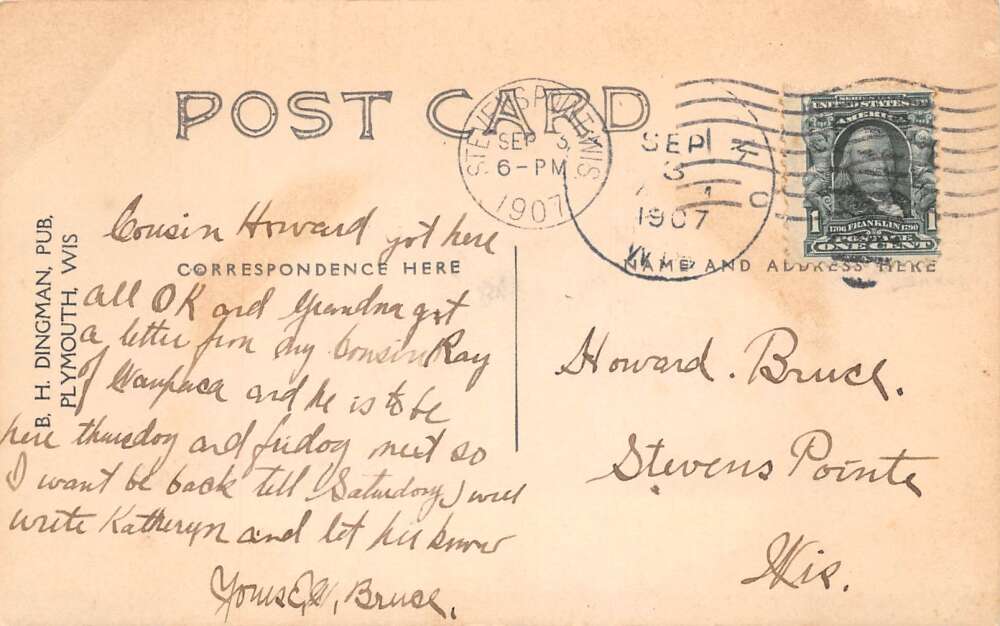 POST CARD
STEVENS POINT, WIS.
SEP 3
6-PM
1907
SEP
3
1907
WIS
SERIES 1902
UNITED STATES OF
AMERICA
1706 FRANKLIN 1790
POSTAGE
1 ONE CENT 1
B. H. DINGMAN, PUB.
PLYMOUTH, WIS
CORRESPONDENCE HERE
NAME AND ADDRESS HERE
Cousin Howard got here
all OK and Grandma got
a letter from my Cousin Ray
of Waupaca and he is to be
here thursday and friday next so
I want be back till Saturday I will
write Katheryn and let her know
Yours E, W, Bruce.
Howard. Bruce.
Stevens Pointe
Wis.